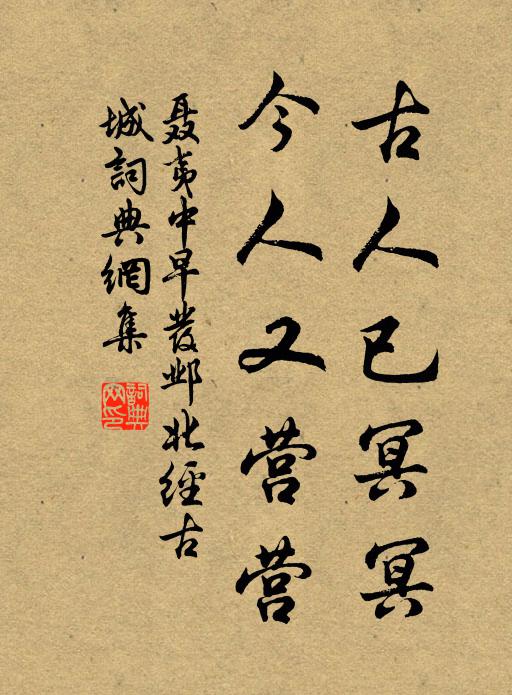 古人已冥冥
今人又营营
聂夷中早發邺北經古
城詞典網集
詞典
网印